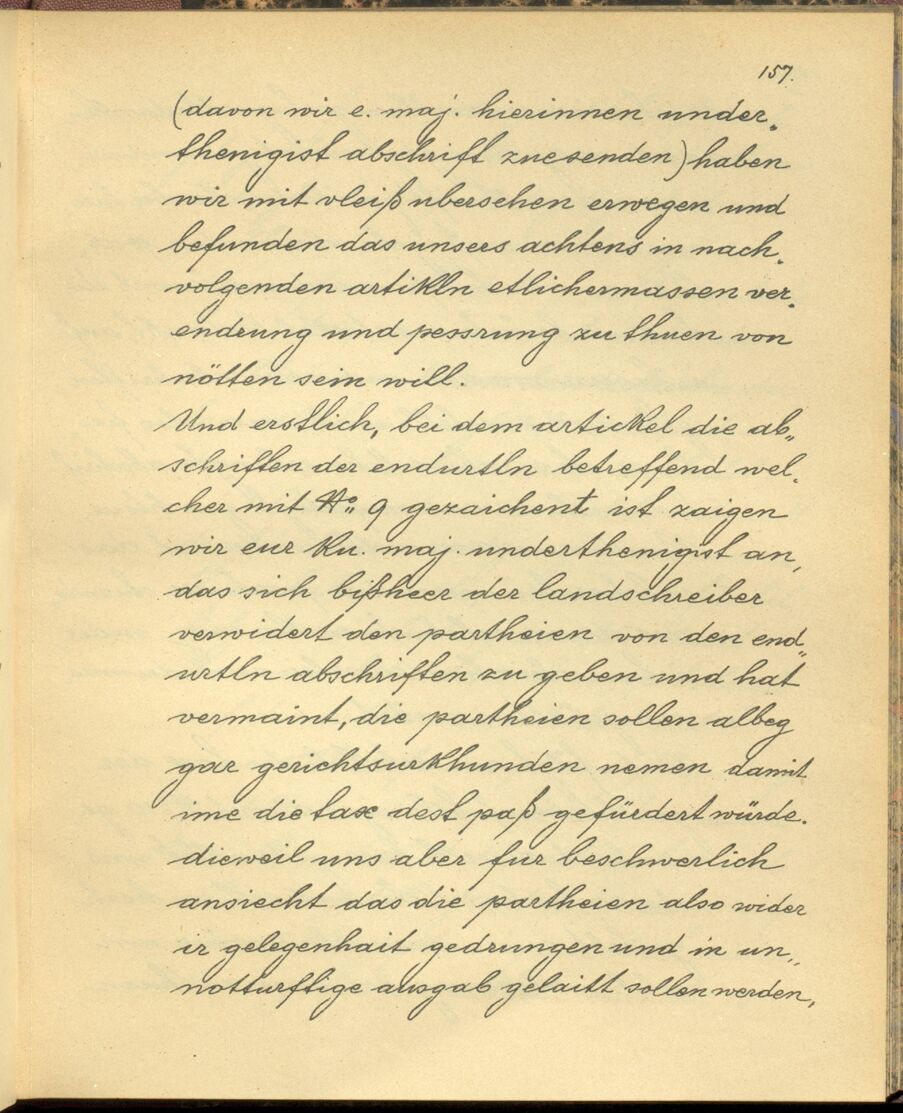 157.
(davon wir e. maj. hierinnen under„
thenigist abschrift zuesenden) haben
wir mit vleiß ubersehen erwegen und
befunden das unsers achtens in nach„
volgenden artikln etlichermassen ver„
endrung und pessrung zu thuen von
nötten sein will.
Und erstlich, bei dem artickel die ab„
schriften der endurtln betreffend wel„
cher mit No: 9 gezaichent ist zaigen
wir eur ku. maj. underthenigist an,
das sich bißheer der landschreiber
verwidert den partheien von den end„
urtln abschriften zu geben und hat
vermaint, die partheien sollen albeg
gar gerichtsurkhunden nemen damit
ime die tax dest paß gefürdert würde.
dieweil uns aber fur beschwerlich
ansiecht das die partheien also wider
ir gelegenhait gedrungen und in un„
notturftige ausgab gelaitt sollen werden,